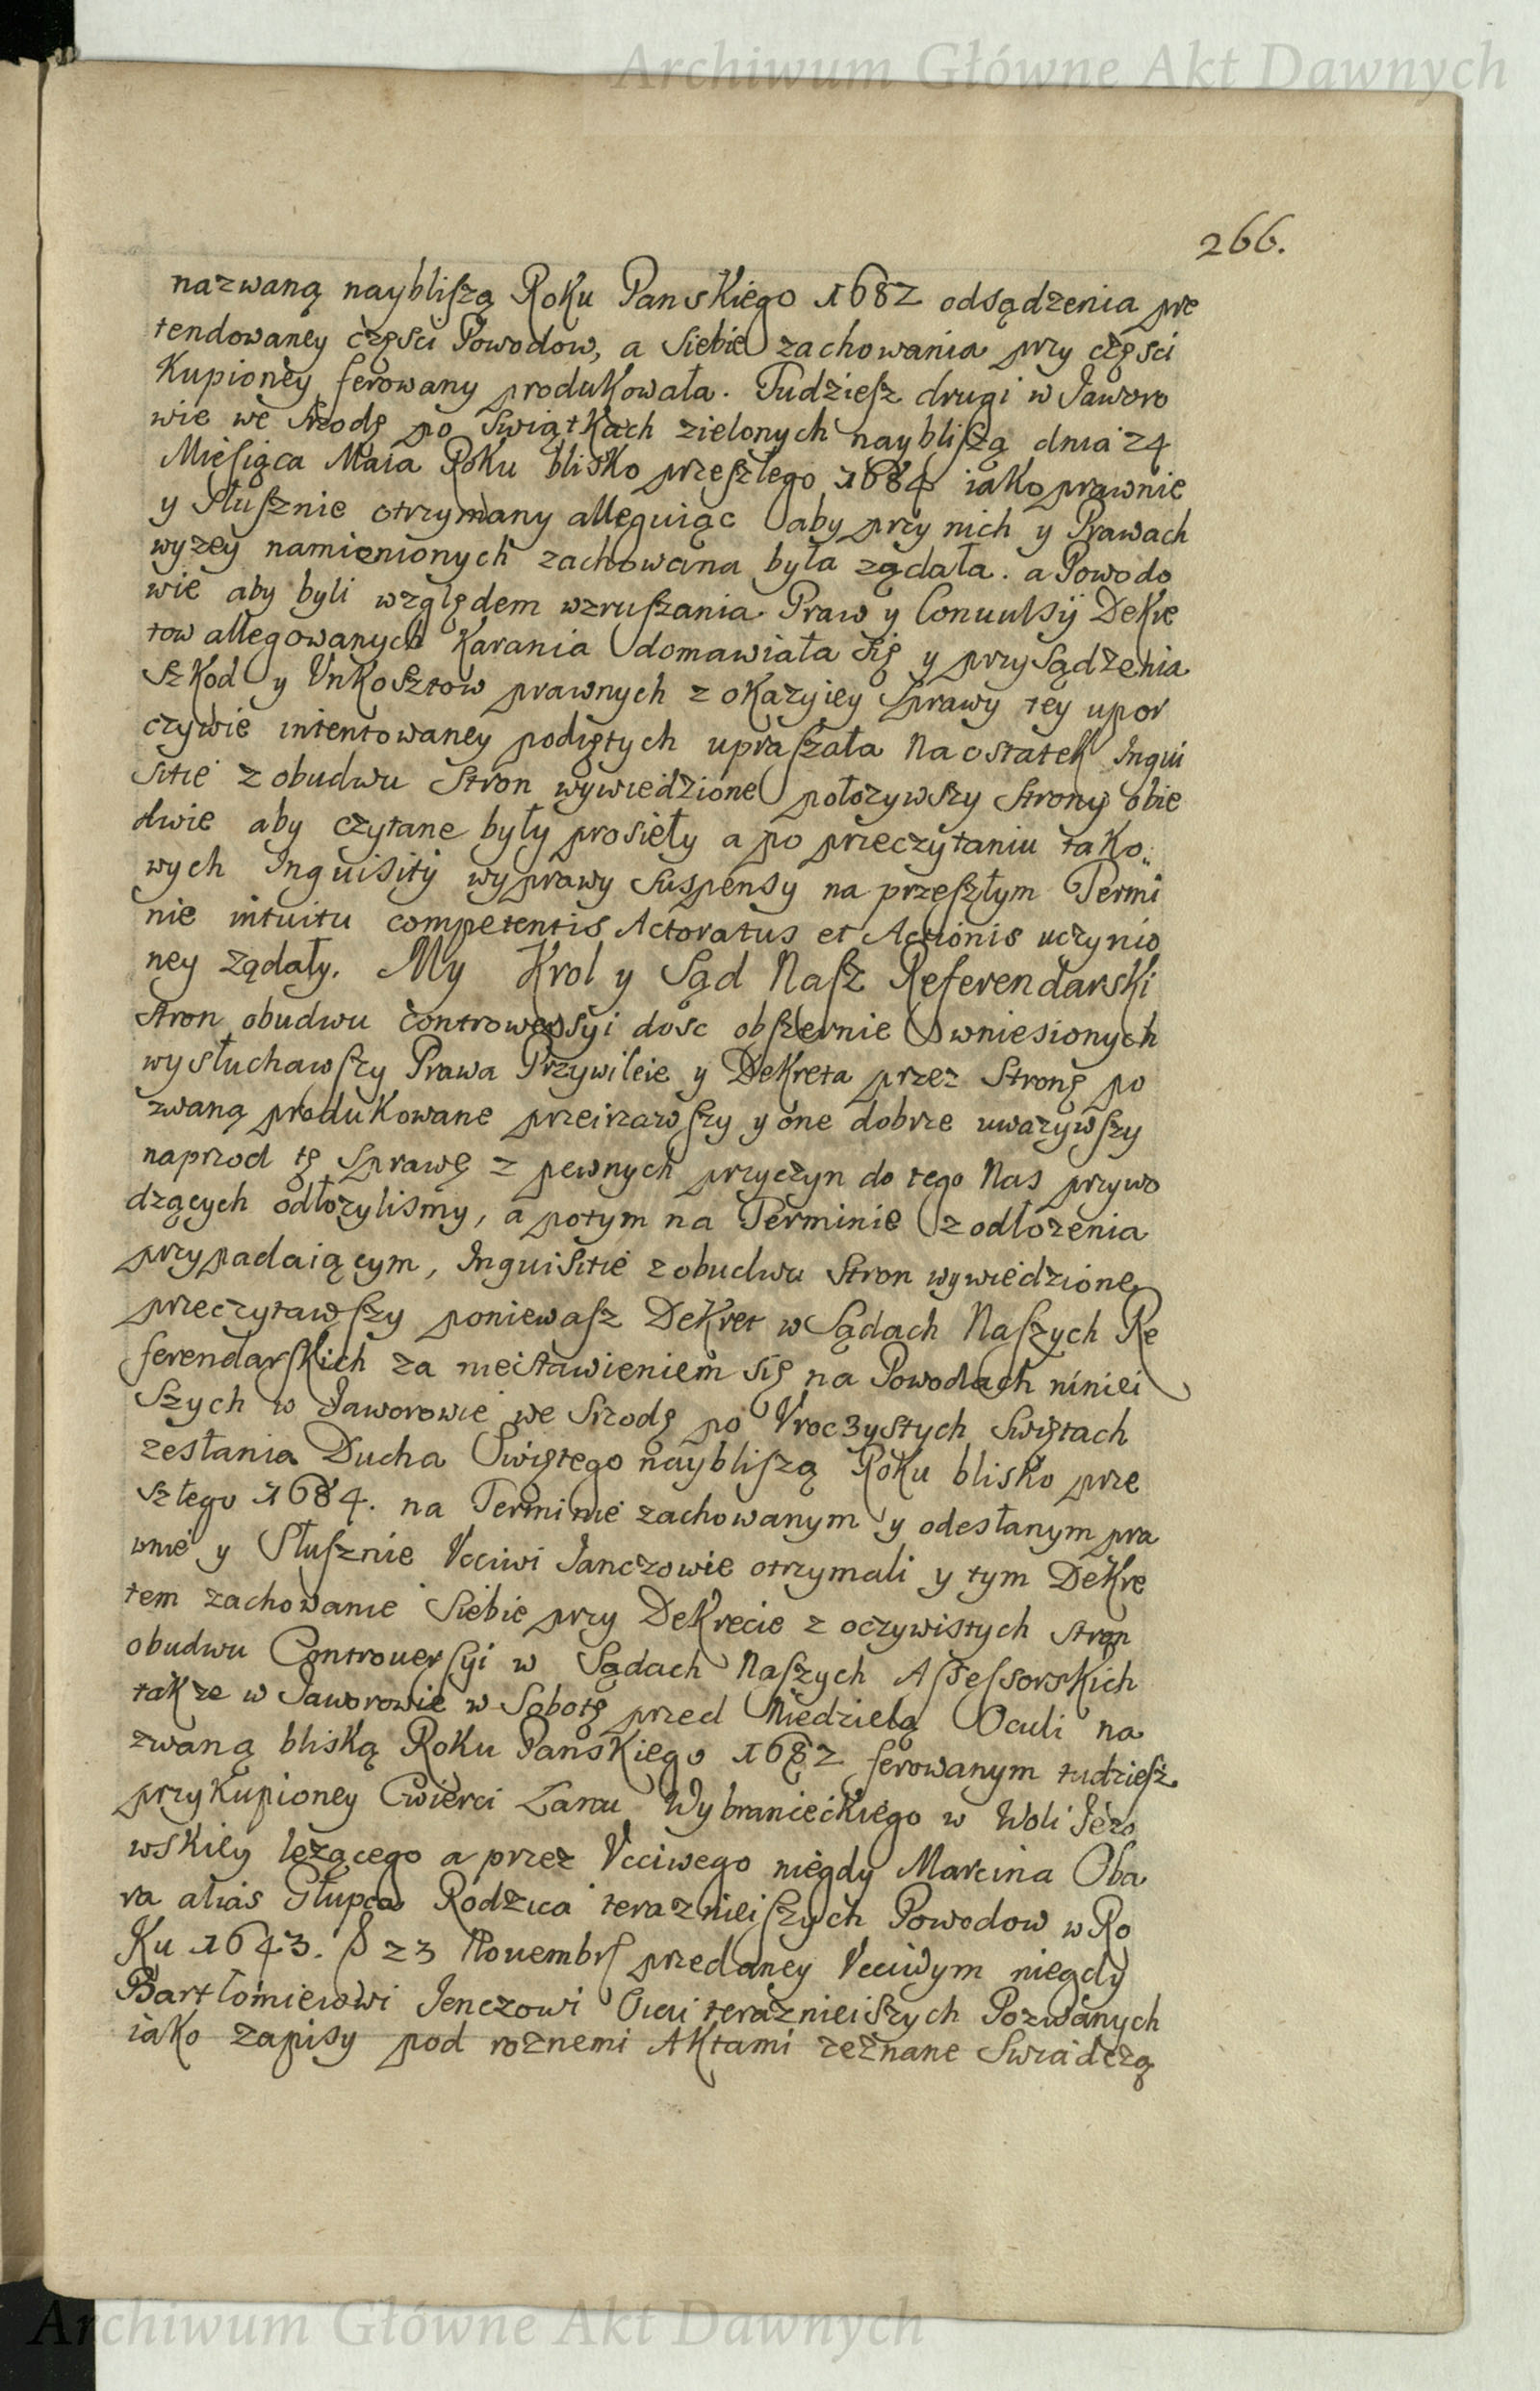 Archiwum Główne Akt Dawnych
266.
nazwaną naybliſzą Roku Panskiego 1682 odsądzenia pre
tendowaney częsci Powodow, a siebie zachowania przy częsci
Kupioney ferowany produkowała. Tudzieſz drugi w Jaworo
wie we Srzodę po Swiątkach zielonych naybliſzą dnia 24
Miesiąca Maia Roku blisko przeſzłego 1684 iako prawnie
y Słuſznie otrzymany alleguiąc aby przy nich y Prawach
wyzey namienionych zachowana była ządała. a Powodo
wie aby byli względem wzruſzania Praw y Conuulsÿ Dekre
tow allegowanych Karania domawiała się y przysądzenia
Szkod y Vnkosztow prawnych z okazyiey Sprawy tey upor
czywie intentowaney podiętych upraſzała Naostatek Inqui
sitie z obudwu Stron wywiedzione połozywszy Strony obie
dwie aby czytane były prosieły a po przeczytaniu tako„
wych Inquisitÿ wyprawy Suspensy na przeſzłym Termi
nie intuitu competentis Actoratus et Actionis uczynio
ney ządały. My Krol y Sąd Naſz Referendarski
stron obudwu controwersyi dosc obſzernie wniesionych
wysłuchawſzy Prawa Przywileie y Dekreta przez Stronę po
zwaną produkowane przeirzawſzy y one dobrze uwazywſzy
naprzod tę Sprawę z pewnych przyczyn do tego Nas przywo
dzących odłozylismy, a potym na Terminie z odłozenia
przypadaiącym, Inquisitie z obudwu Stron wywiedzione
przeczytawſzy poniewaſz Dekret w Sądach Naſzych Re
ferendarſkich za niestawieniem się na Powodach niniei
Szych w Jaworowie we Srzodę po Vroczystych Swiętach
zesłania Ducha Swiętego naybliſzą Roku blisko prze
szłego 1684. na Terminie zachowanym y odesłanym pra
wnie y Słuſznie Vcciwi Janczowie otrzymali y tym Dekre
tem zachowanie Siebie przy Dekrecie z oczywistych Stron
obudwu Controuerſyi w Sądach Naſzych Aſseſsorskich
takze w Jaworowie w Sobotę przed Niedzielą Oculi na
zwaną bliską Roku Panskiego 1682 ferowanym tudzieſz
przykupioney Cwierci Łanu Wybranieckiego w Woli Jezo
wskiey lezącego a przez Vcciwego niegdy Marcina Oba
ra alias Głupca Rodzica teraznieiſzych Powodow w Ro
Ku 1643. D 23 Nouembrſ przedaney Vcciwym niegdy
Bartłomiewi Jenczowi Oycu teraznieiszych Pozwanych
iako zapisy pod roznemi Aktami zeznane Swiadczą
Archiwum Główne Akt Dawnych